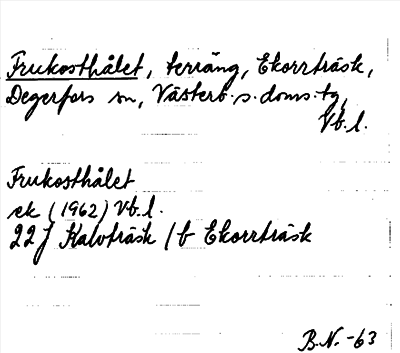 Frukosthålet, terräng, Ekorrträsk,
Degerfors sn, Västerb. s. doms. tg,
Vb. l.
Frukosthålet
ek (1962) Vb. l.
22 J Kalvträsk /b Ekorrträsk
B.N. -63